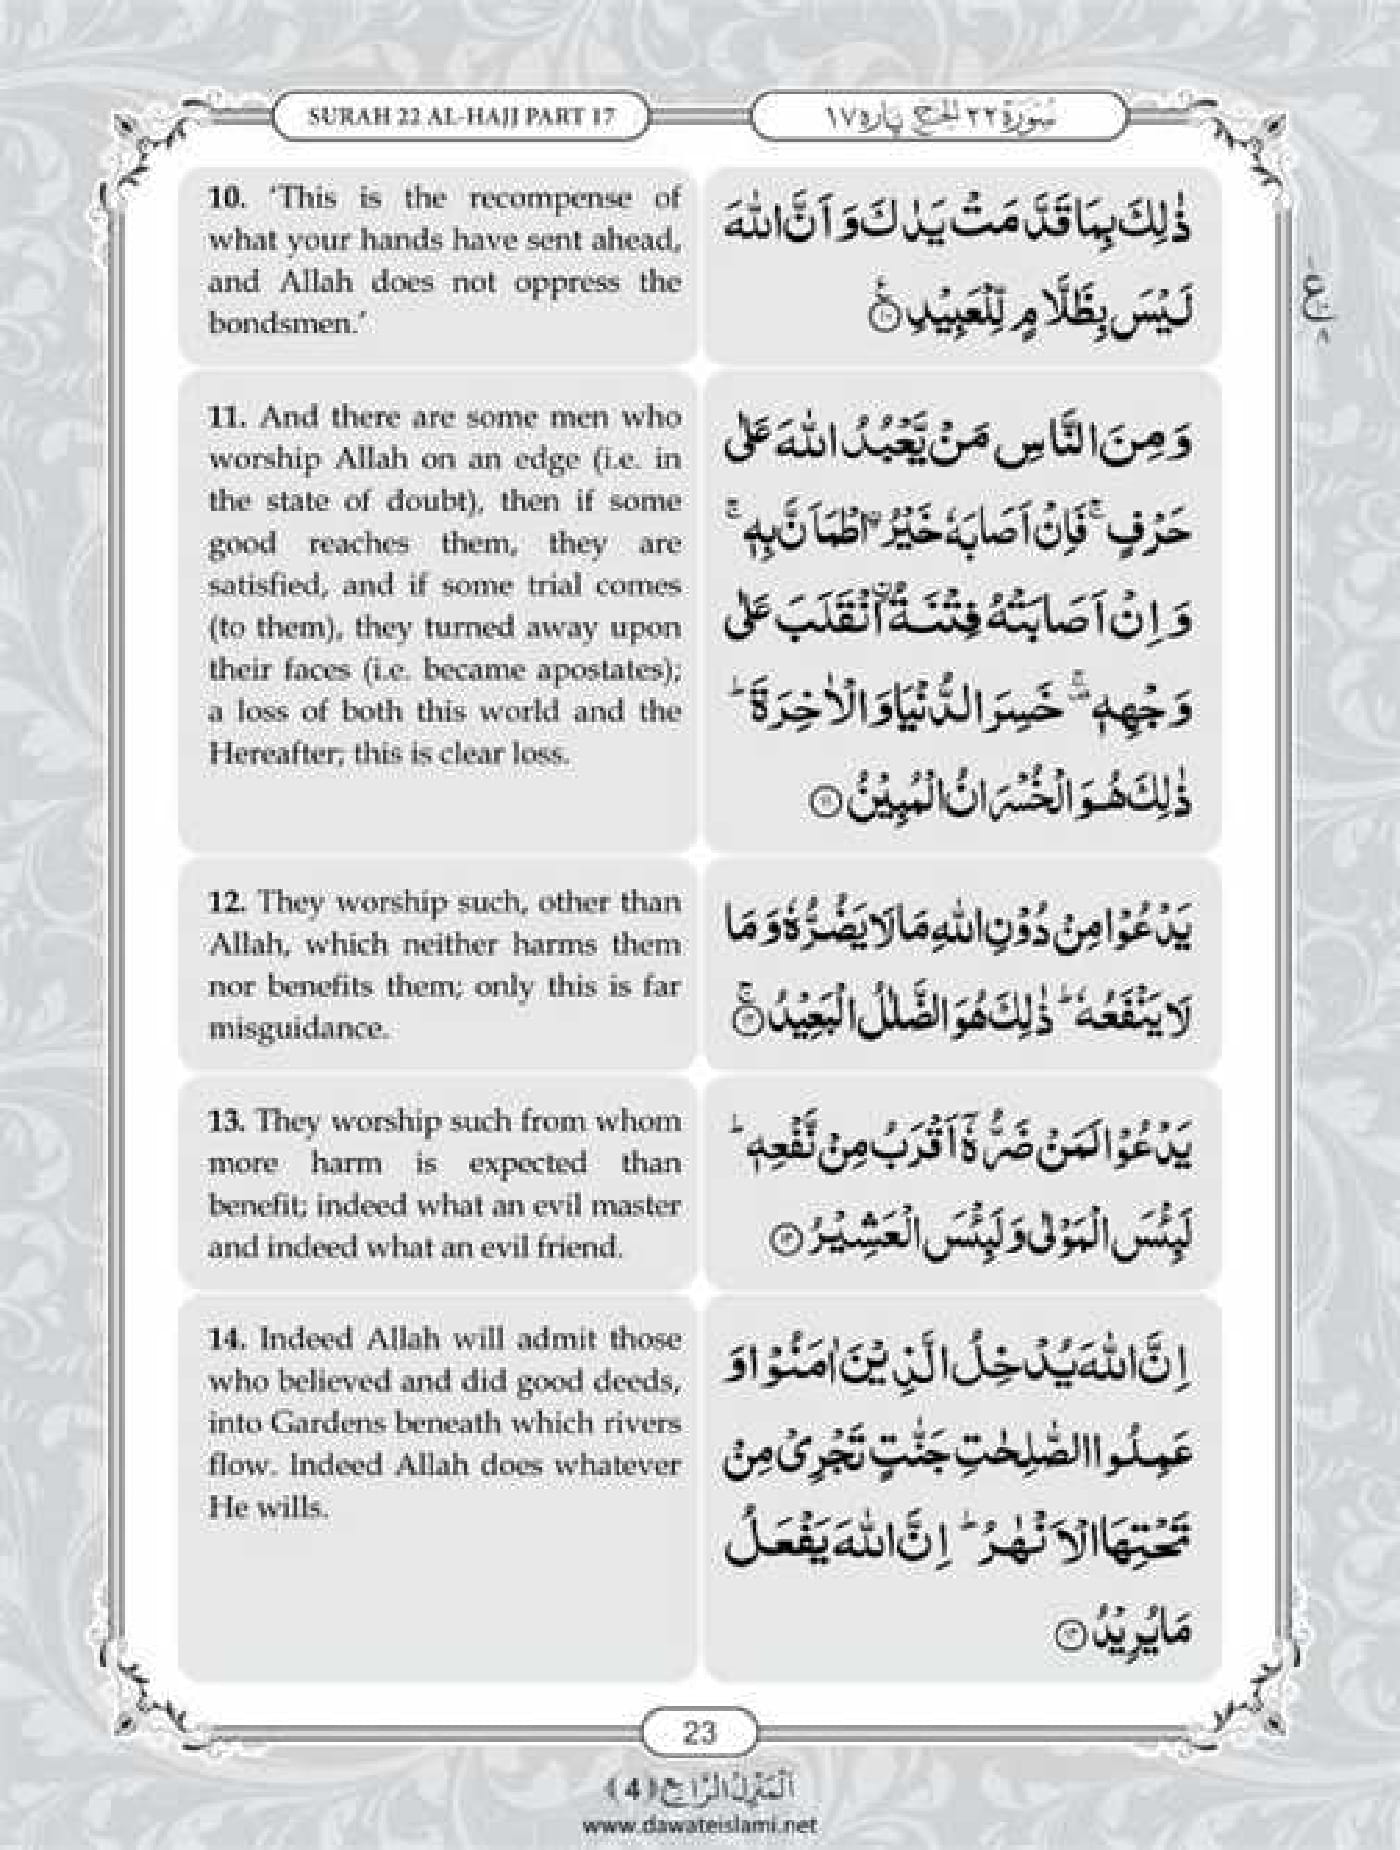 SURAH 22 AL-HAJJ PART 17
سُوْرَة ٢٢ الحج پارہ ١٧
10. ‘This is the recompense of
what your hands have sent ahead,
and Allah does not oppress the
bondsmen.’
ذٰلِكَ بِمَا قَدَّمَتْ يَدٰكَ وَ اَنَّ اللّٰهَ
لَيْسَ بِظَلَّامٍ لِّلْعَبِيْدِ ۠ ۝۱۰
ع
۸
11. And there are some men who
worship Allah on an edge (i.e. in
the state of doubt), then if some
good reaches them, they are
satisfied, and if some trial comes
(to them), they turned away upon
their faces (i.e. became apostates);
a loss of both this world and the
Hereafter; this is clear loss.
وَ مِنَ النَّاسِ مَنْ يَّعْبُدُ اللّٰهَ عَلٰى
حَرْفٍ ۚ فَاِنْ اَصَابَهٗ خَيْرُ ۨاطْمَاَنَّ بِهٖ ۚ
وَ اِنْ اَصَابَتْهُ فِتْنَةُ ۨانْقَلَبَ عَلٰى
وَجْهِهٖ ۫ۚ خَسِرَ الدُّنْيَا وَ الْاٰخِرَةَ ؕ
ذٰلِكَ هُوَ الْخُسْرَانُ الْمُبِيْنُ ۝۱۱
12. They worship such, other than
Allah, which neither harms them
nor benefits them; only this is far
misguidance.
يَدْعُوْا مِنْ دُوْنِ اللّٰهِ مَا لَا يَضُرُّهٗ وَ مَا
لَا يَنْفَعُهٗ ؕ ذٰلِكَ هُوَ الضَّلٰلُ الْبَعِيْدُ ۚ ۝۱۲
13. They worship such from whom
more harm is expected than
benefit; indeed what an evil master
and indeed what an evil friend.
يَدْعُوْا لَمَنْ ضَرُّهٗۤ اَقْرَبُ مِنْ نَّفْعِهٖ ؕ
لَبِئْسَ الْمَوْلٰى وَ لَبِئْسَ الْعَشِيْرُ ۝۱۳
14. Indeed Allah will admit those
who believed and did good deeds,
into Gardens beneath which rivers
flow. Indeed Allah does whatever
He wills.
اِنَّ اللّٰهَ يُدْخِلُ الَّذِيْنَ اٰمَنُوْا وَ
عَمِلُوا الصّٰلِحٰتِ جَنّٰتٍ تَجْرِيْ مِنْ
تَحْتِهَا الْاَنْهٰرُ ؕ اِنَّ اللّٰهَ يَفْعَلُ
مَا يُرِيْدُ ۝۱۴
23
اَلْمَنْزِلُ الرَّابِعُ (4)
www.dawateislami.net